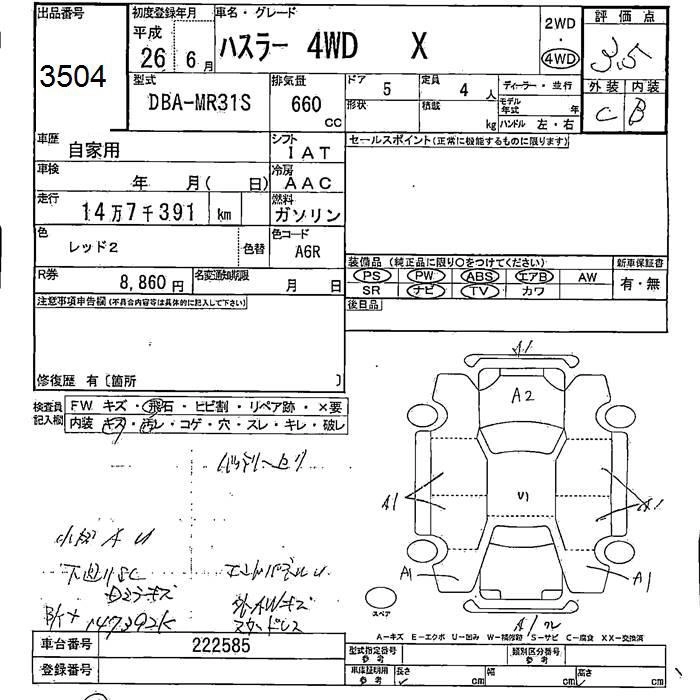 出品番号
3504
初度登録年月
平成
26年
6月
車名・グレード
ハスラー 4WD X
2WD
・
4WD
評価点
3.5
外装 内装
C B
型式
DBA-MR31S
排気量
660
cc
ドア
5
定員
4人
形状
積載
kg
ディーラー・並行
モデル年式 年
ハンドル 左・右
車歴
自家用
シフト
IAT
車検
年 月( 日)
冷房
AAC
走行
14万7千391 km
燃料
ガソリン
色
レッド2
色替
色コード
A6R
R券
8,860円
名変通知期限
月 日
セールスポイント(正常に機能するものに限ります)
装備品(純正品に限り○をつけてください)
PS PW ABS エアB AW
SR ナビ TV カワ
新車保証書
有・無
後日品
注意事項申告欄(不具合内容等は具体的に記入して下さい)
修復歴 有〔箇所 〕
検査員記入欄
FW キズ・飛石・ヒビ割・リペア跡・×要
内装 キズ・汚レ・コゲ・穴・スレ・キレ・破レ
バッテリー上り
小傷 A U
下廻りSC
エンドパネルU
外AWキズ
スタッドレス
147392K
A1
A2
A1
U1
A1
A1
A1
スペア
A1
A―キズ E―エクボ U―凹み W―補修跡 S―サビ C―腐食 XX―交換済
車台番号
222585
登録番号
型式指定番号
参考
類別区分番号
参考
車検証明用
参考
長さ cm
幅 cm
高さ cm